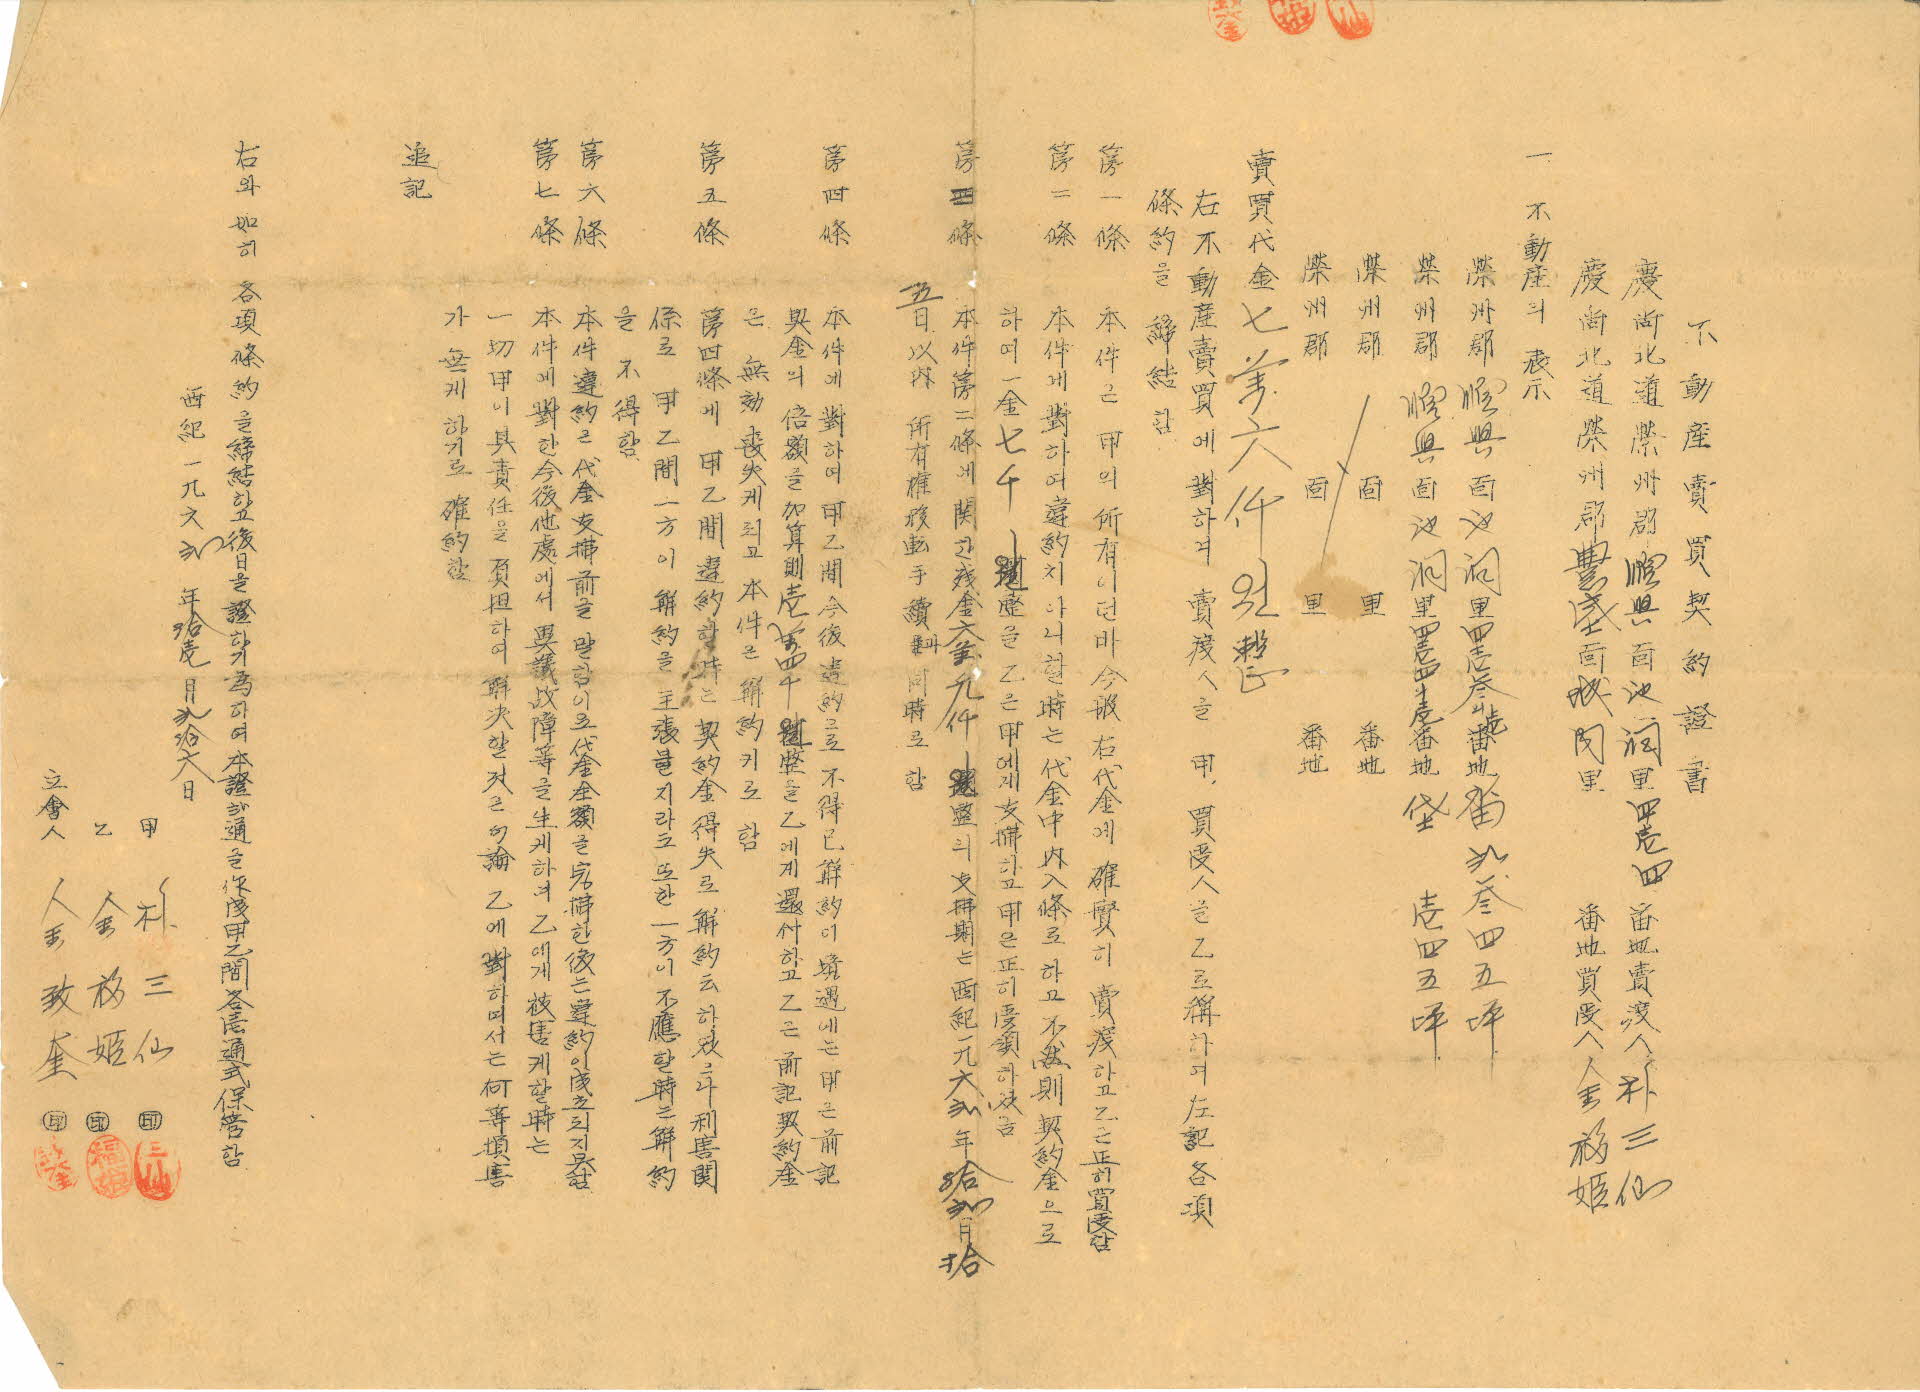 不動産賣買契約證書
慶尙北道榮州郡順興面池洞里四壱四番地賣渡人朴三仙
慶尙北道榮州郡豊基面城内里 番地買受人金福姬
一 不動産의 表示
榮州郡順興面池洞里四壱参 番地畓 弐参四五坪
榮州郡順興面池洞里四壱四 番地垈 壱四五坪
榮州郡 面 里 番地
榮州郡 面 里 番地
賣買代金七萬六仟원整
右不動産賣買에 對하여 賣渡人을 甲, 買受人을 乙로稱하여左記各項
條約을 締結함
第一條 本件은 甲의所有이던바 今般右代金에 確實히 賣渡하고乙은正히買受함
第二條 本件에 對하여 違約치아니할時는代金中內入條로하고不然則契約金으로
하여 一金七千 整을乙은甲에게支拂하고甲은正히受領하였음
第 條 本件第二條에関한残金六萬九仟 整의支拂期는西紀一九六弐年拾弐月拾
五日以內 所有權移転手續 同時로함
第四條 本件에對하여甲乙間今後違約으로不得已解約이境遇에는甲은前記
契金의倍額을加算則壱萬四千 整을乙에게還付하고乙은前記契約金
은 無効喪失케되고本件은解約키로함
第五條 第四條에甲乙間違約할時는契約金得失로解約云하였으나利害関
係로甲乙間一方이解約을主張 지라도또한一方이不應할時는解約
을不得함
第六條 本件違約은代金支拂前을말함이요代金全額을完拂한後는違約이成立되지못함
第七條 本件에對한今後他處에서異議故障等을生케하여乙에게被害케할時는
一切甲이其責任을負担하여解決할것은勿論乙에對하여서는何等損害
가無케하기로確約함
追記
右와如히各項條約을締結하고後日을證하기爲하여本證弐通을作成甲乙間各壱通式保管함
西紀一九六弐年拾壱月弐拾六日
甲 朴三仙 ㊞
乙 金福姬 ㊞
立會人 金致奎 ㊞